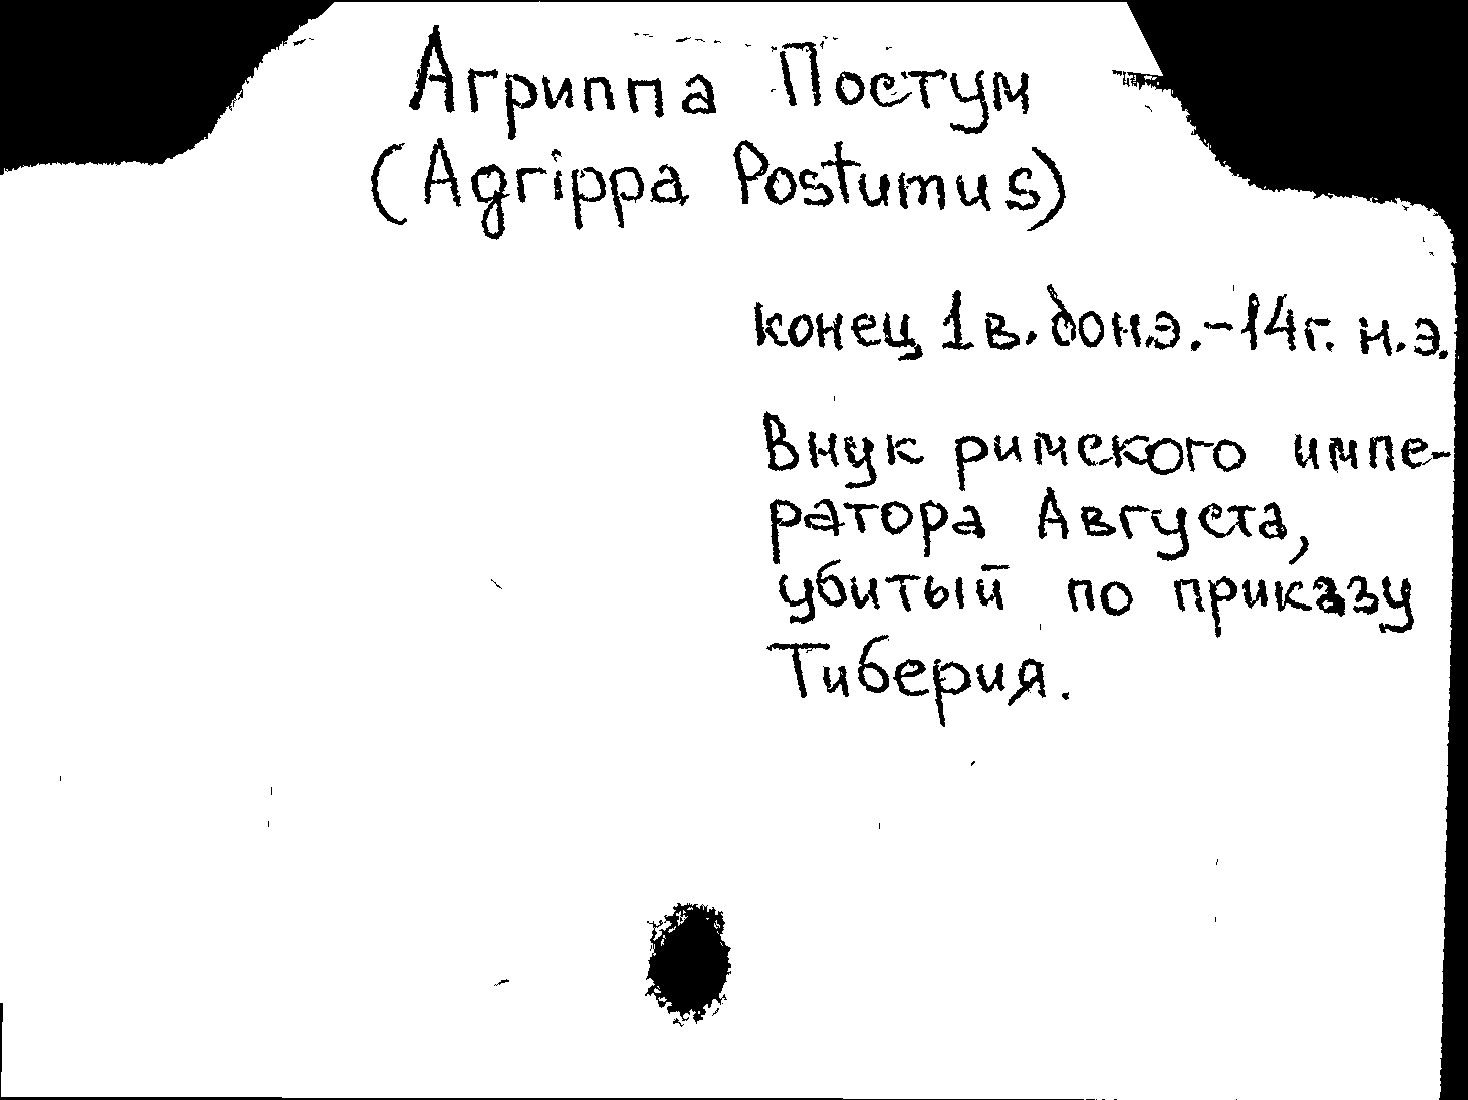 Агриппа Постум
(Agrippa Postumus)
конец 1 в. до н.э. - 14 г. н.э.
Внук римского импе-
ратора Августа,
убитый по приказу
Тиберия.